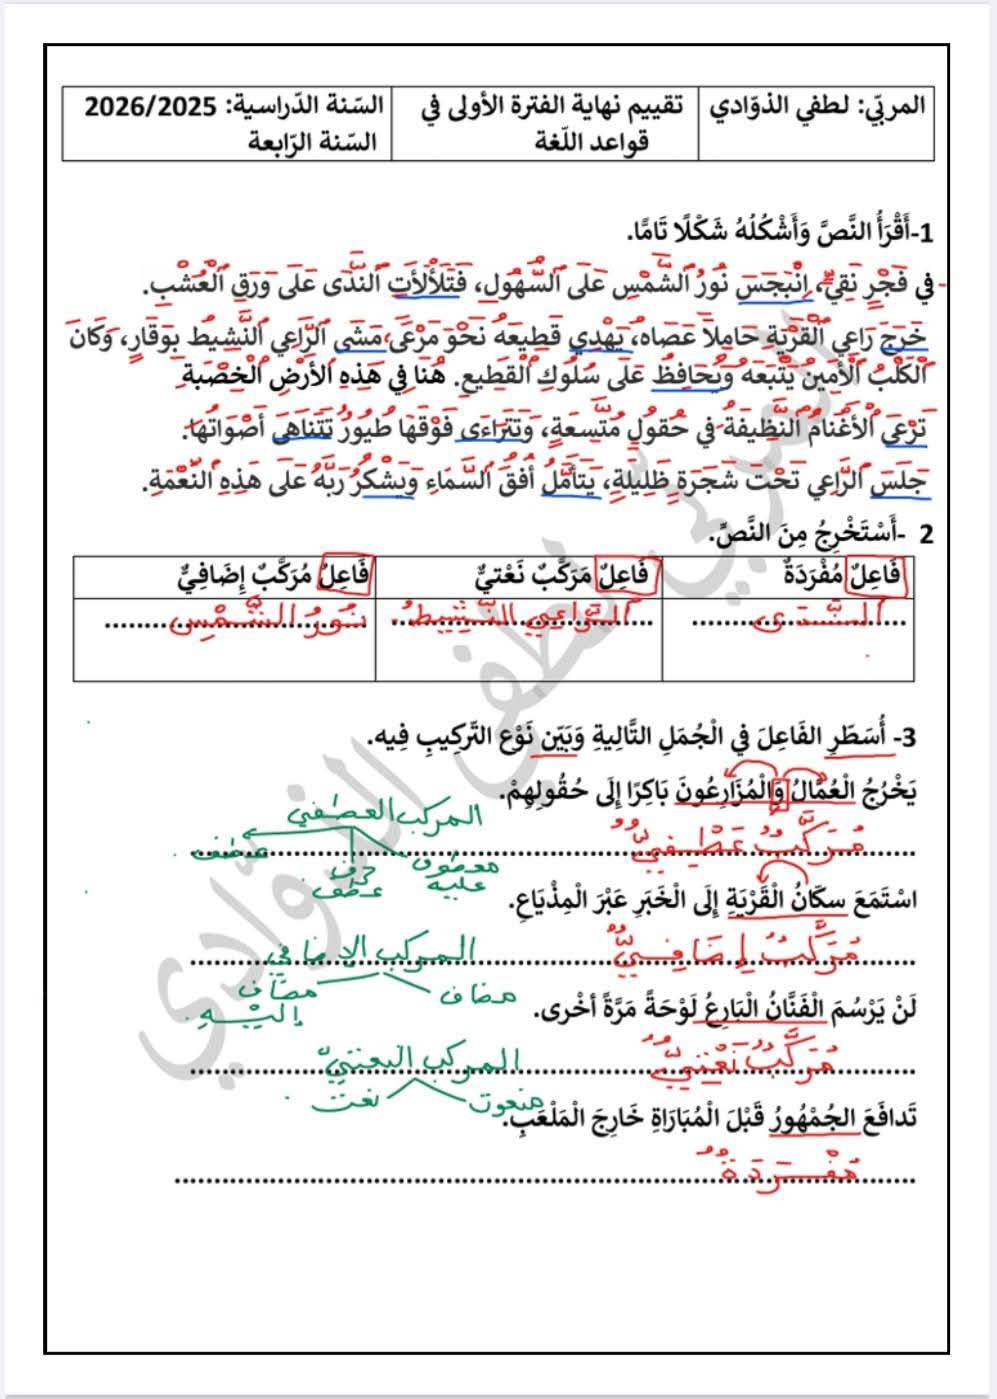 المربّي: لطفي الذوّادي
تقييم نهاية الفترة الأولى في
قواعد اللّغة
السّنة الدّراسية: 2026/2025
السّنة الرّابعة
1-أَقْرَأُ النَّصَّ وَأَشْكُلُهُ شَكْلًا تَامًّا.
في فَجْرٍ نَقِيٍّ، اِنْبَجَسَ نُورُ الشَّمْسِ عَلَى السُّهُولِ، فَتَلَأْلَأَتِ النَّدَى عَلَى وَرَقِ الْعُشْبِ.
خَرَجَ رَاعِي الْقَرْيَةِ حَامِلًا عَصَاهُ، يَهْدِي قَطِيعَهُ نَحْوَ مَرْعًى، مَشَى الرَّاعِي النَّشِيطُ بِوَقَارٍ، وَكَانَ
الْكَلْبُ الْأَمِينُ يَتْبَعُهُ وَيُحَافِظُ عَلَى سُلُوكِ الْقَطِيعِ. هُنَا فِي هَذِهِ الْأَرْضِ الْخَصْبَةِ
تَرْعَى الْأَغْنَامُ النَّظِيفَةُ فِي حُقُولٍ مُتَّسِعَةٍ، وَتَتَرَاءَى فَوْقَهَا طُيُورٌ تَتَنَاهَى أَصْوَاتُهَا.
جَلَسَ الرَّاعِي تَحْتَ شَجَرَةٍ ظَلِيلَةٍ، يَتَأَمَّلُ أُفُقَ السَّمَاءِ وَيَشْكُرُ رَبَّهُ عَلَى هَذِهِ النِّعْمَةِ.
2 -أَسْتَخْرِجُ مِنَ النَّصِّ.
فَاعِلٌ مُفْرَدَةٌ
فَاعِلٌ مَرَكَّبٌ نَعْتيٌّ
فَاعِلٌ مُرَكَّبٌ إِضَافِيٌّ
النَّدَى
الرَّاعِي النَّشِيطُ
نُورُ الشَّمْسِ
3- أُسَطِّرِ الفَاعِلَ في الْجُمَلِ التَّالِيةِ وَبَيّن نَوْعَ التّركِيبِ فِيه.
يَخْرُجُ الْعُمَّالُ وَالْمُزَارِعُونَ بَاكِرًا إِلَى حُقُولِهِمْ.
مُرَكَّبٌ عَطْفِيٌّ
المركب العطفي
معطوف عليه
حرف عطف
عطف
اسْتَمَعَ سكّانُ الْقَرْيَةِ إِلَى الْخَبَرِ عَبْرَ الْمِذْيَاعِ.
مُرَكَّبٌ إِضَافِيٌّ
المركب الإضافي
مضاف
مضاف إليه
لَنْ يَرْسُمَ الْفَنَّانُ الْبَارِعُ لَوْحَةً مَرَّةً أخْرى.
مُرَكَّبٌ نَعْتِيٌّ
المركب النعتيّ
منعوت
نعت
تَدافَعَ الجُمْهُورُ قَبْلَ الْمُبَارَاةِ خَارِجَ الْمَلْعَبِ.
مُفْرَدَةٌ
المربّي لطفي الذوّادي